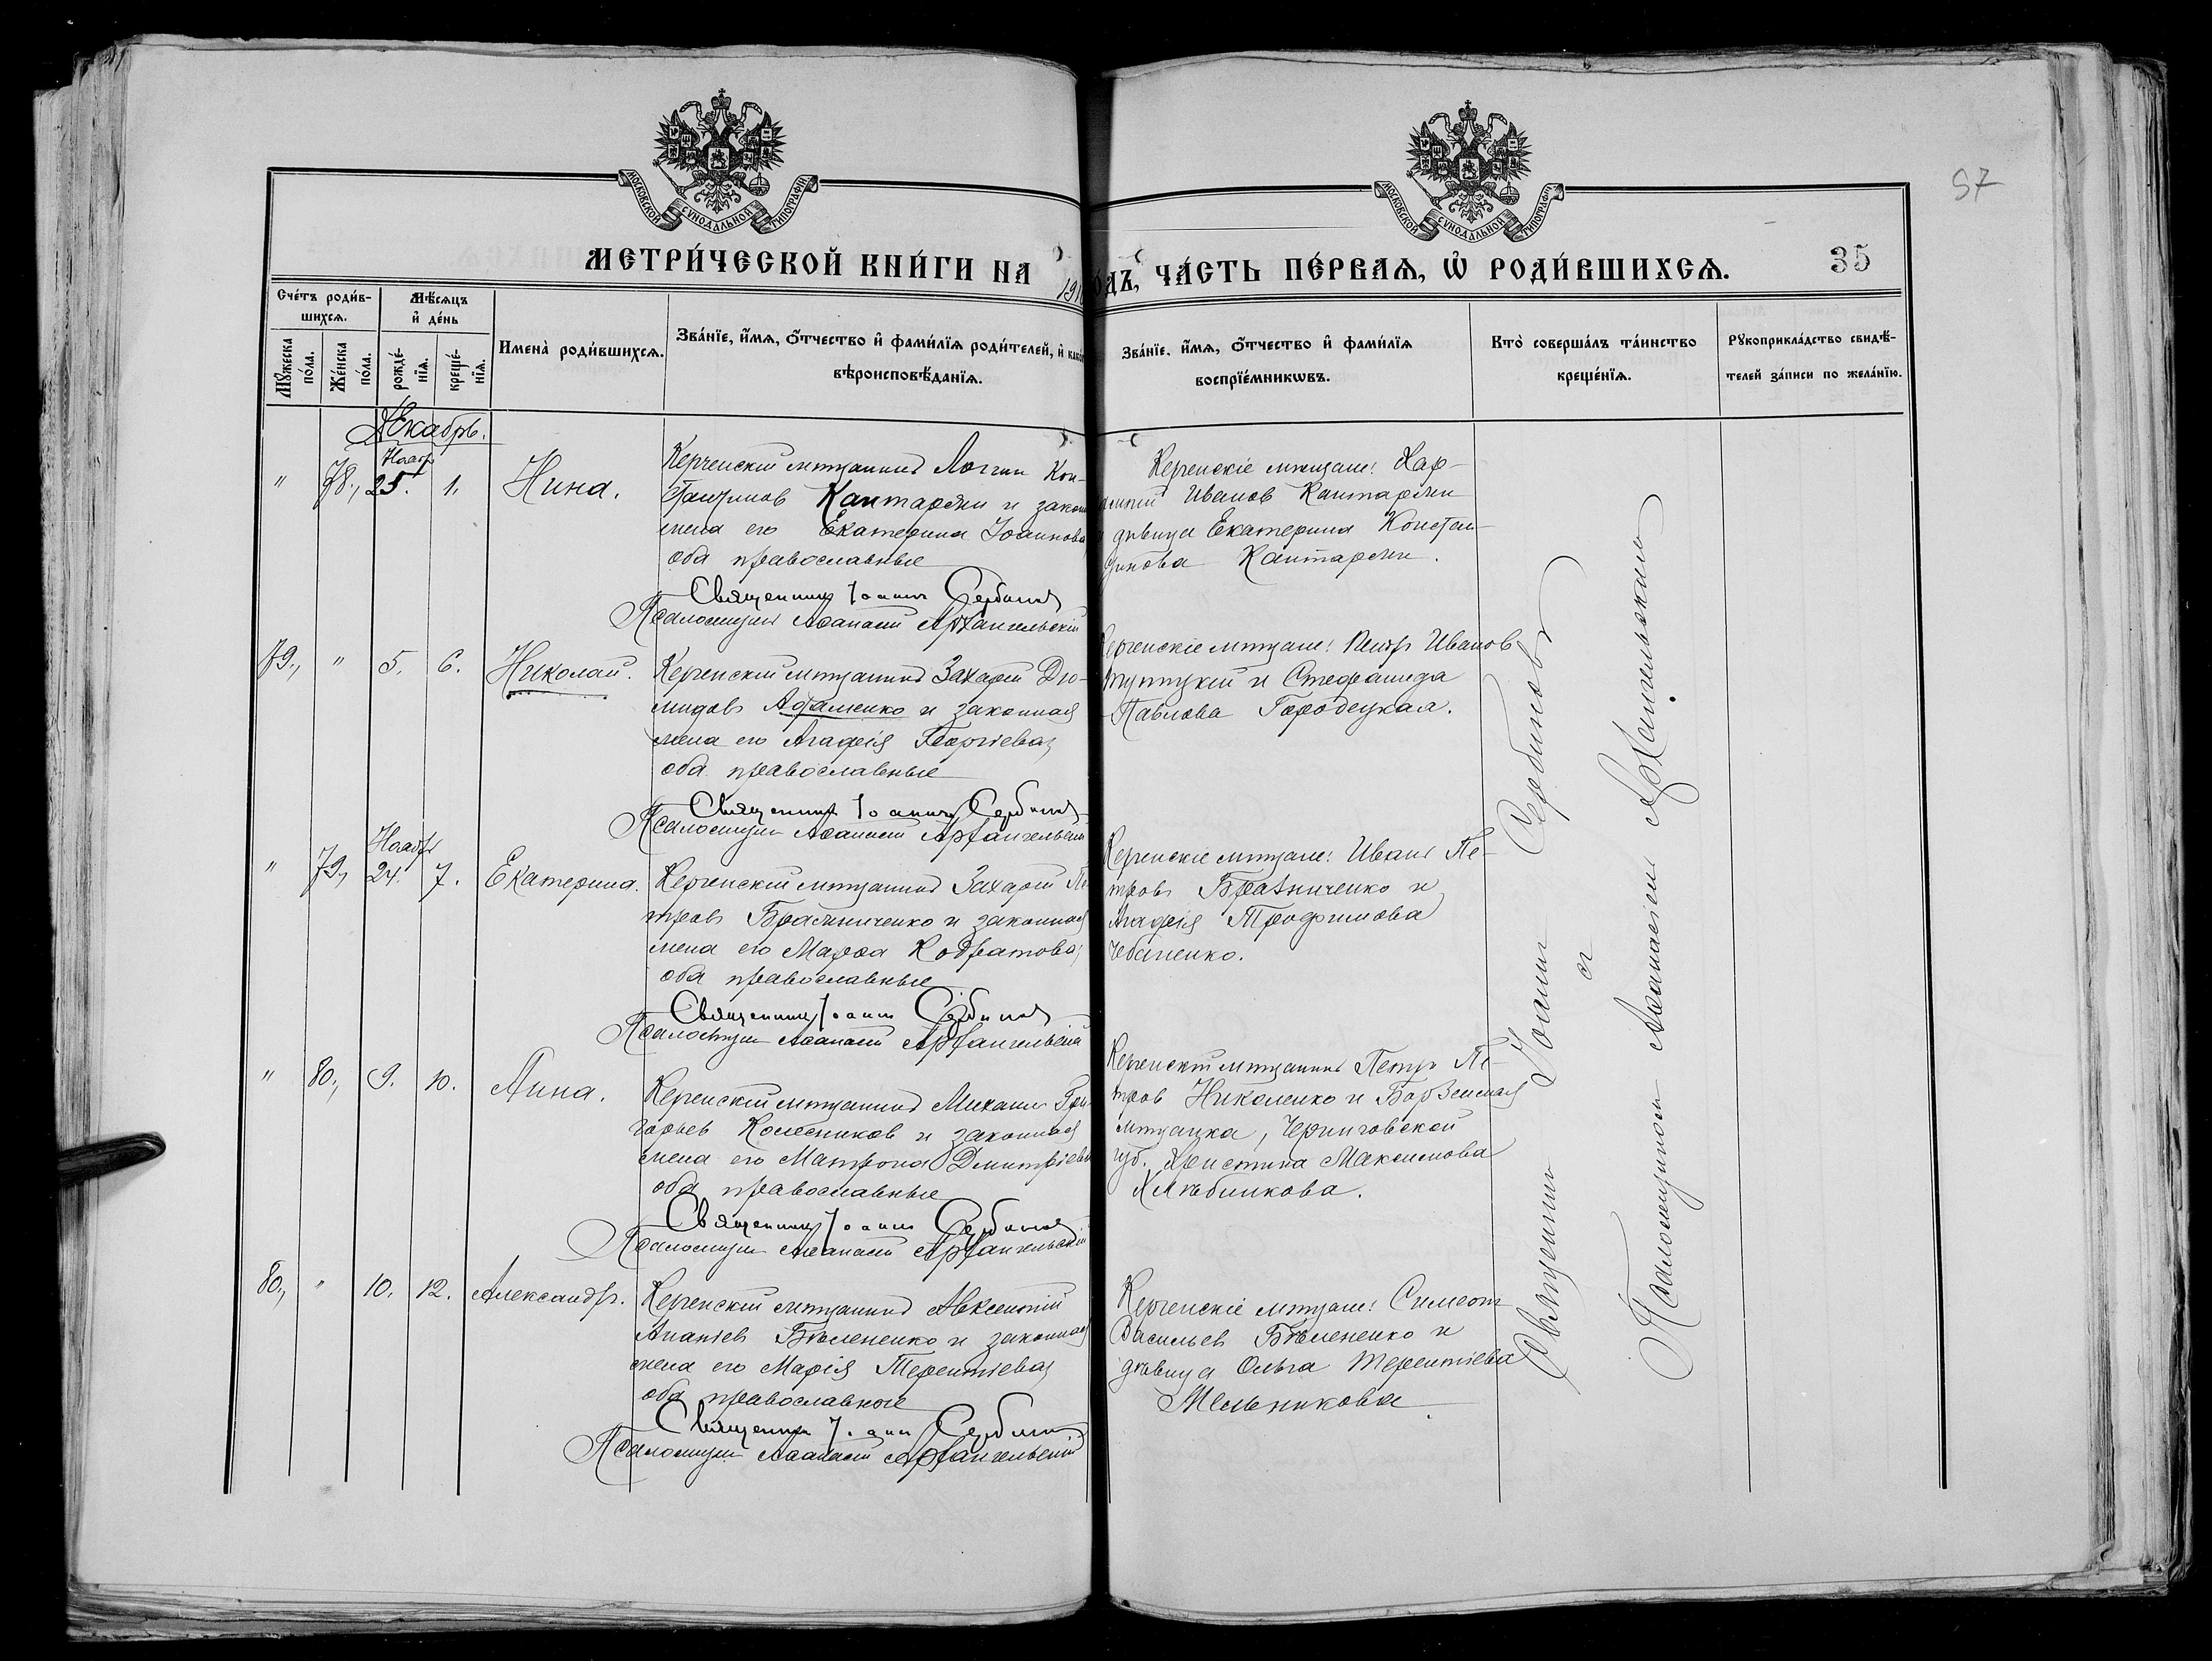 МОСКОВСКОЙ СѴНОДАЛЬНОЙ ТИПОГРАФІИ
МОСКОВСКОЙ СѴНОДАЛЬНОЙ ТИПОГРАФІИ
57
МЕТРИ́ЧЕСКОЙ КНИ́ГИ НА 191
ОДЪ, ЧА́СТЬ ПЕ́РВАѦ, Ѡ҆ РОДИ́ВШИХСѦ.
35
Сче́тъ роди́в-
шихсѧ.
Мѣ́сѧцъ
и҆ де́нь
Мꙋ́жеска
по́ла.
Же́нска
по́ла.
рожде́-
нїѧ.
креще́-
нїѧ.
Имена̀ роди́вшихсѧ.
Зва́нїе, и҆́мѧ, ѻ҆́тчество и҆ фами́лїѧ роди́телей, и҆ како
вѣроисповѣ́данїѧ.
Зва́нїе, и҆́мѧ, ѻ҆́тчество и҆ фами́лїѧ
воспрїе́мникѡвъ.
Кто̀ соверша́лъ та́инство
креще́нїѧ.
Рꙋкоприкла́дство свидѣ́-
телей за́писи по жела́нїю.
Декабрь.
" 78., Ноябр 25. 1. Нина.
Керченскій мѣщанинъ Логгин Кон-
стантинов Кантаржи и закон
жена его Екатерина Іоаннова
оба православные
Священникъ Іоаннъ Сербиновъ
Псаломщикъ Аѳанасій Архангельскій
Керченскіе мѣщане: Хар-
лампій Иванов Кантаржи
и дѣвица Екатерина Констан-
тинова Кантаржи.
79., " 5. 6. Николай.
Керченскій мѣщанинъ Захарій Дio-
мидовъ Адаменко и законная
жена его Агаѳія Георгіева,
оба православные
Священникъ Іоаннъ Сербиновъ
Псаломщикъ Аѳанасій Архангельскій
Керченскіе мѣщане: Петръ Иванов
и Стефанида
Павлова Городецкая.
" 79., Ноябр 24. 7. Екатерина.
Керченскій мѣщанинъ Захарій Пе
тровъ Бражниченко и законная
жена его Марѳа Кодратова,
оба православные
Священникъ Іоаннъ Сербиновъ
Псаломщикъ Аѳанасій Архангельскій
Керченскіе мѣщане: Иванъ Пе-
тровъ Бражниченко и
Агаѳія Трофимова
Чебаненко.
" 80., 9. 10. Анна.
Керченскій мѣщанинъ Михаилъ Гри
горьев Колесников и законная
жена его Матрона Дмитріева
оба православные
Священникъ Іоаннъ Сербиновъ
Псаломщикъ Аѳанасій Архангельскій
Керченскій мѣщанинъ Петръ Пе-
тров Николенко и Борзенская
мѣщанка, Черниговской
губ. Христина Максимова
Хлѣбникова.
80., " 10. 12. Александръ.
Керченскій мѣщанинъ Авксентій
Ананіев Бѣлененко и законная
жена его Марія Терентіева,
оба православные
Священникъ Іоаннъ Сербиновъ
Псаломщикъ Аѳанасій Архангельскій
Керченскіе мѣщане: Симеон
Васильев Бѣлененко и
дѣвица Ольга Терентіева
Мельникова
Священникъ Іоаннъ Сербиновъ
съ
Псаломщикомъ Аѳанасіемъ Архангельскимъ